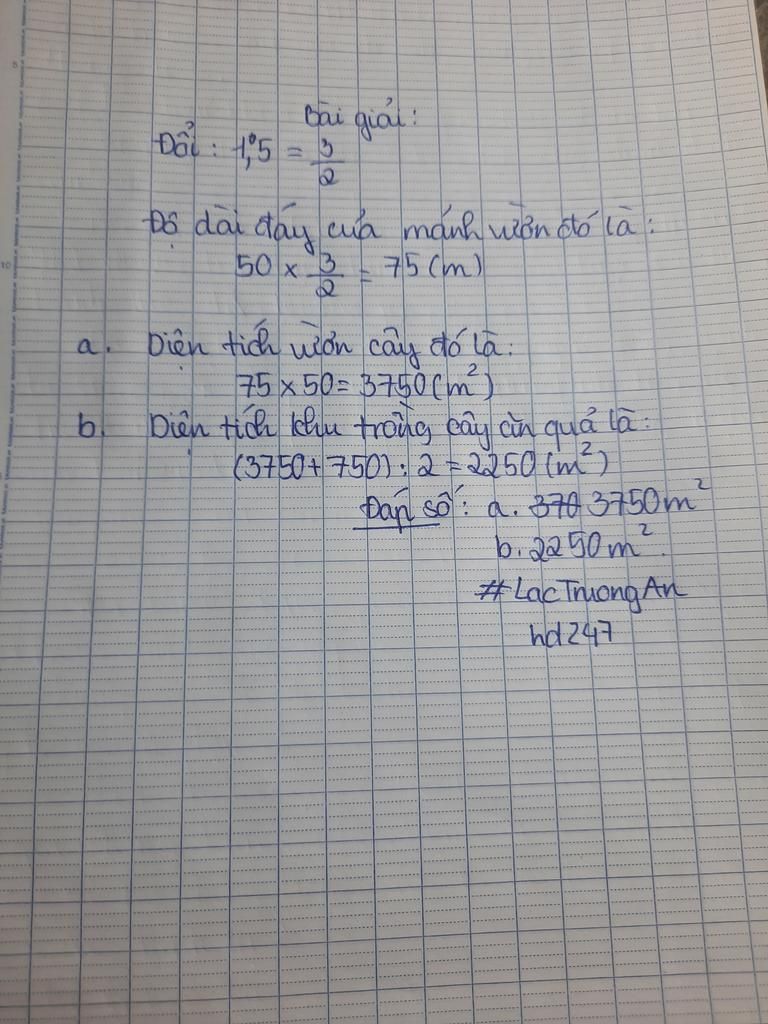 Bài giải:
Đổi: 1,5 = 3/2
Độ dài đáy của mảnh vườn đó là:
50 × 3/2 = 75 (m)
a. Diện tích vườn cây đó là:
75 × 50 = 3750 (m²)
b. Diện tích khu trồng cây ăn quả là:
(3750 + 750) : 2 = 2250 (m²)
Đáp số: a. 3750m²
b. 2250m².
#LacTruongAn
hd247